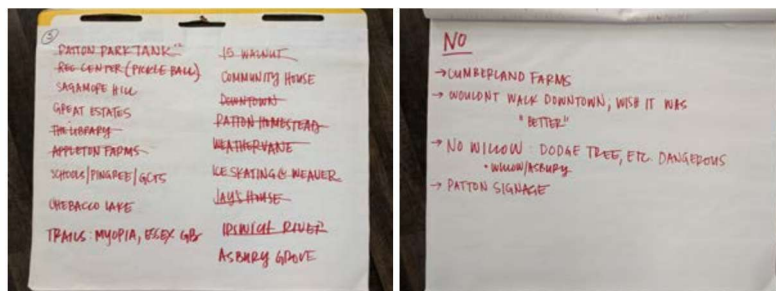 3
PATTON PARK TANK
REC CENTER (PICKLE BALL)
SAGAMORE HILL
GREAT ESTATES
THE LIBRARY
APPLETON FARMS
SCHOOLS/PINGREE/GCTS
CHEBACCO LAKE
TRAILS: MYOPIA, ESSEX GB
15 WALNUT
COMMUNITY HOUSE
DOWNTOWN
PATTON HOMESTEAD
WEATHERVANE
ICE SKATING @ WEAVER
JAY'S HOUSE
IPSWICH RIVER
ASBURY GROVE
NO
→ CUMBERLAND FARMS
→ WOULDNT WALK DOWNTOWN, WISH IT WAS
"BETTER"
→ NO WILLOW: DODGE TREE, ETC. DANGEROUS
• WILLOW/ASBURY
→ PATTON SIGNAGE